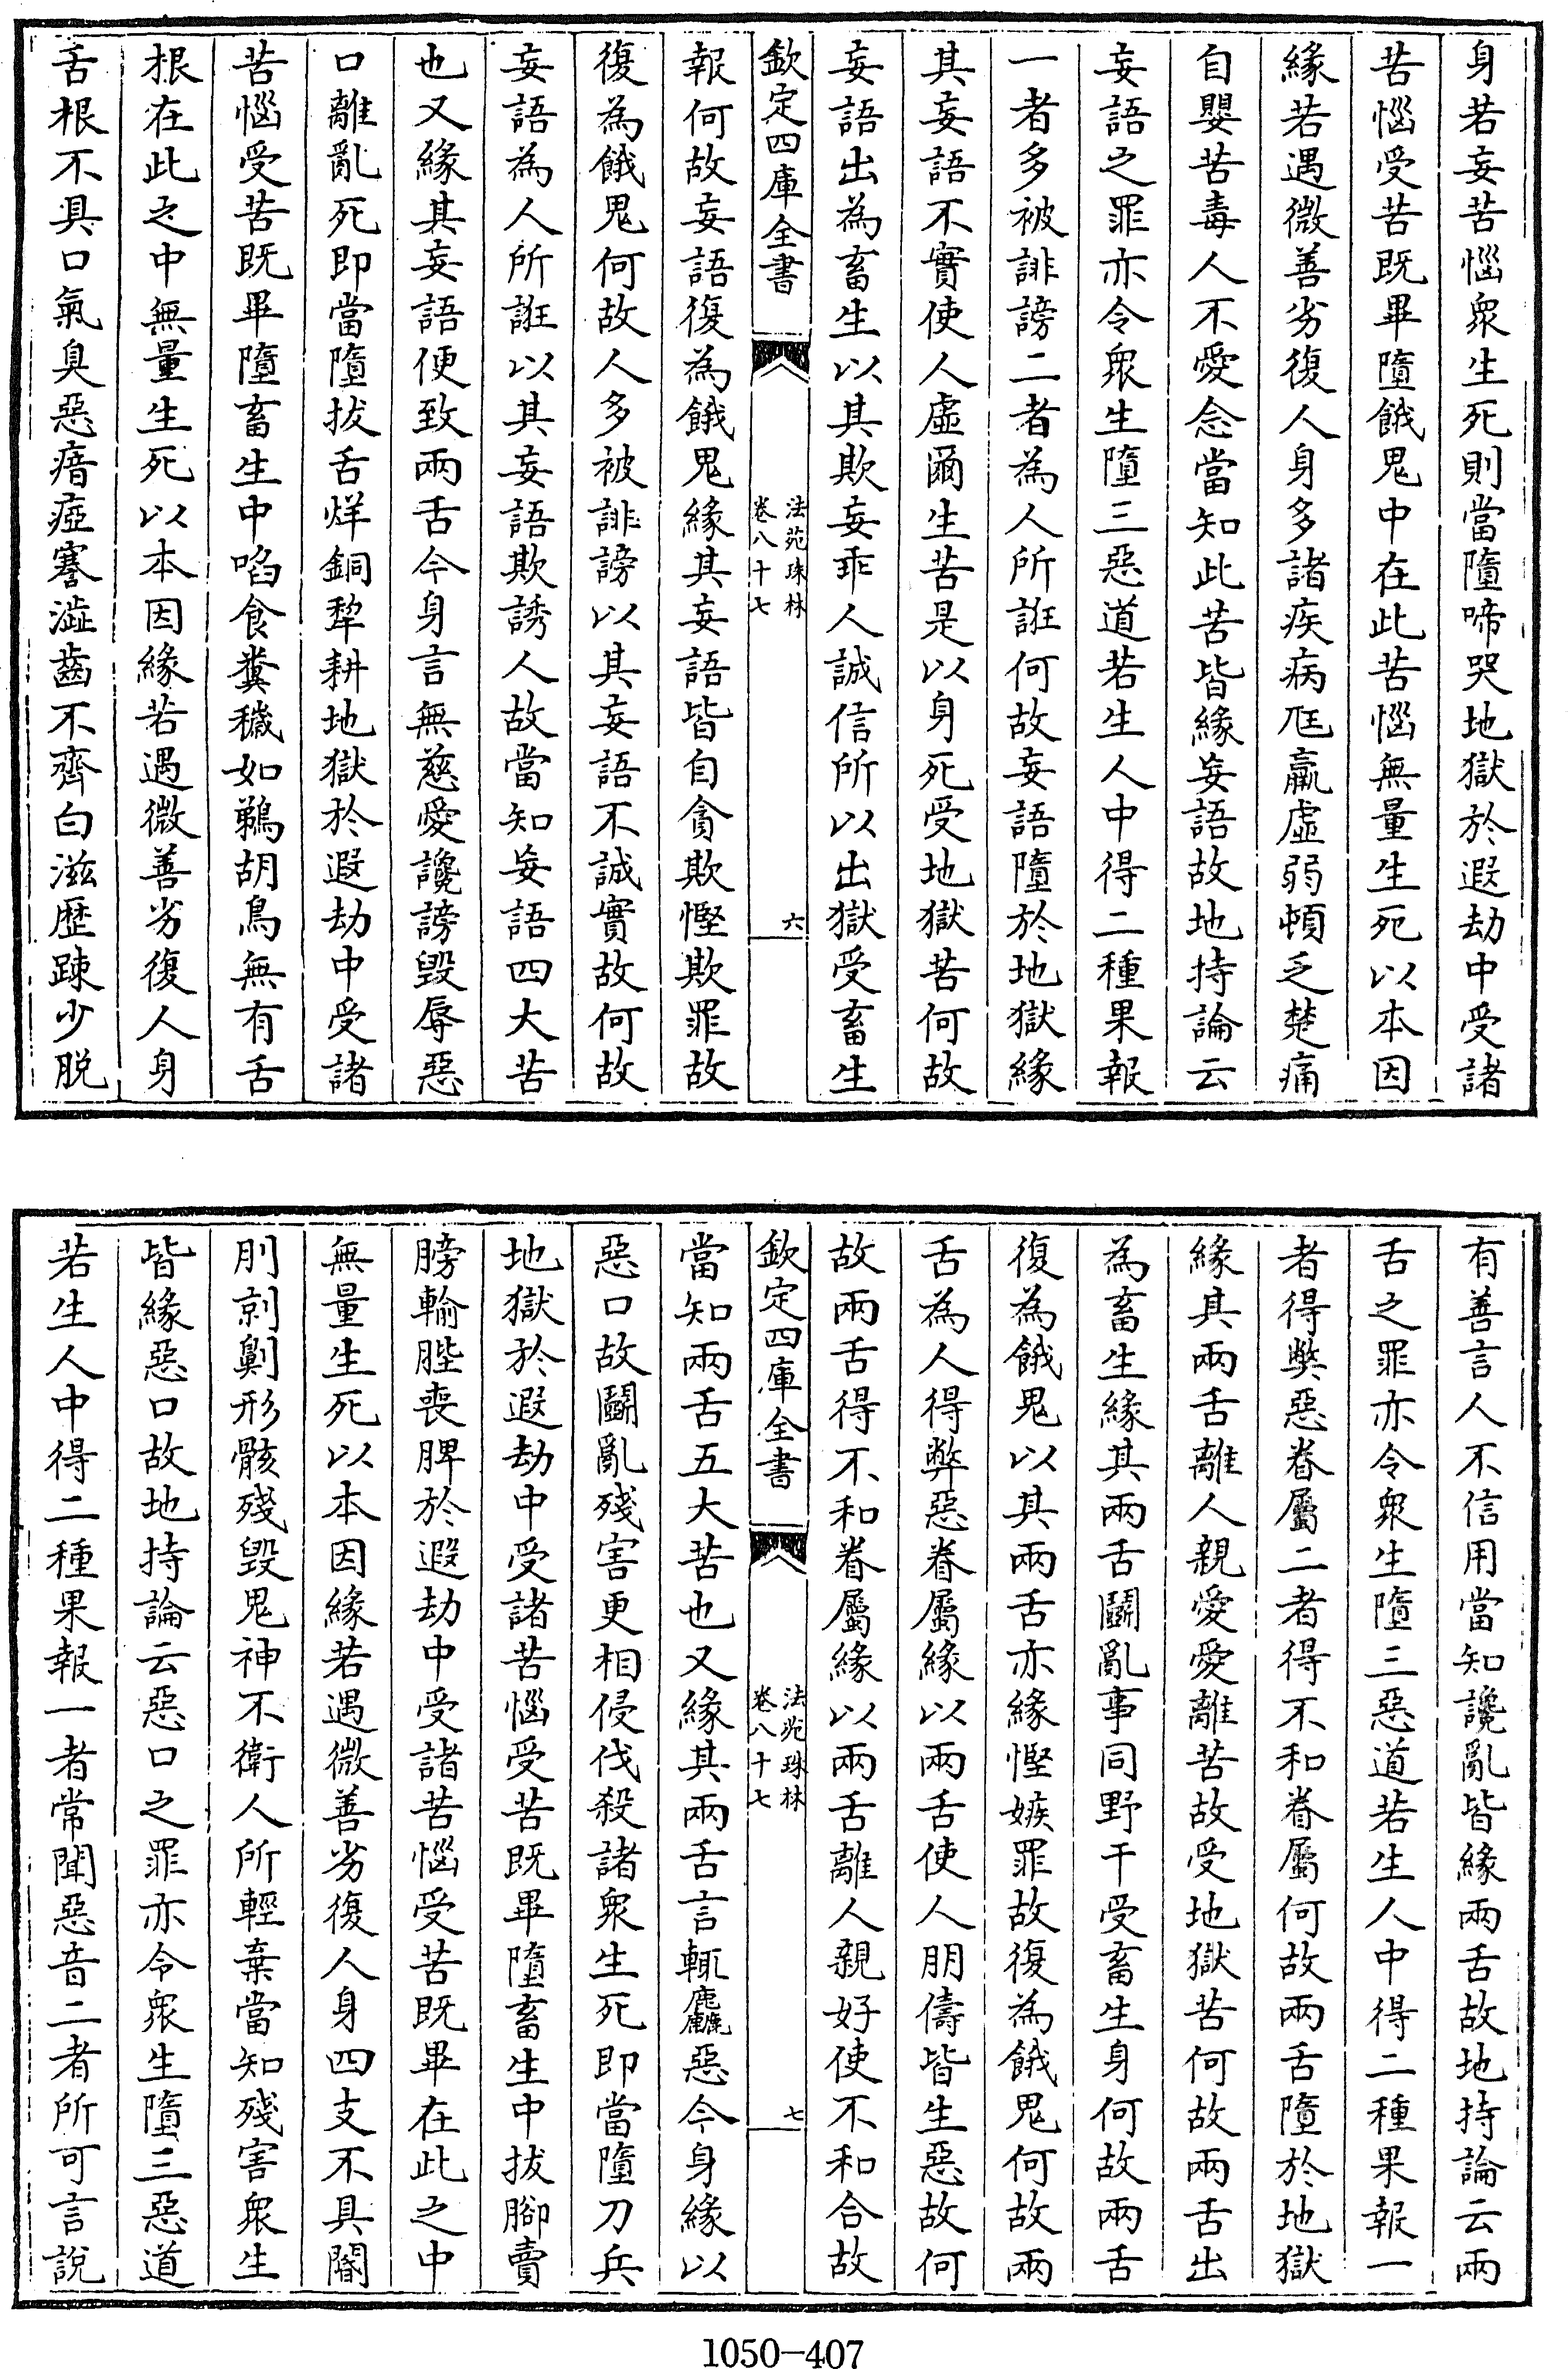 身若妄苦惱衆生死則當墮啼哭地獄於遐劫中受諸
苦惱受苦既畢墮餓鬼中在此苦惱無量生死以本因
緣若遇微善劣復人身多諸疾病尫羸虛弱頓乏楚痛
自嬰苦毒人不愛念當知此苦皆緣妄語故地持論云
妄語之罪亦令衆生墮三惡道若生人中得二種果報
一者多被誹謗二者為人所誑何故妄語墮於地獄緣
其妄語不實使人虛爾生苦是以身死受地獄苦何故
妄語出為畜生以其欺妄乖人誠信所以出獄受畜生
欽定四庫全書
法苑珠林
卷八十七
六
報何故妄語復為餓鬼緣其妄語皆自貪欺慳欺罪故
復為餓鬼何故人多被誹謗以其妄語不誠實故何故
妄語為人所誑以其妄語欺誘人故當知妄語四大苦
也又緣其妄語便致兩舌今身言無慈愛讒謗毀辱惡
口離亂死即當墮拔舌烊銅犂耕地獄於遐劫中受諸
苦惱受苦既畢墮畜生中啗食糞穢如鵜胡鳥無有舌
根在此之中無量生死以本因緣若遇微善劣復人身
舌根不具口氣臭惡瘖瘂謇澁齒不齊白滋歷踈少脫
有善言人不信用當知讒亂皆緣兩舌故地持論云兩
舌之罪亦令衆生墮三惡道若生人中得二種果報一
者得弊惡眷屬二者得不和眷屬何故兩舌墮於地獄
緣其兩舌離人親愛愛離苦故受地獄苦何故兩舌出
為畜生緣其兩舌鬭亂事同野干受畜生身何故兩舌
復為餓鬼以其兩舌亦緣慳嫉罪故復為餓鬼何故兩
舌為人得弊惡眷屬緣以兩舌使人朋儔皆生惡故何
故兩舌得不和眷屬緣以兩舌離人親好使不和合故
欽定四庫全書
法苑珠林
卷八十七
七
當知兩舌五大苦也又緣其兩舌言輒麤惡今身緣以
惡口故鬭亂殘害更相侵伐殺諸衆生死即當墮刀兵
地獄於遐劫中受諸苦惱受苦既畢墮畜生中拔腳賣
膀輸䏶喪脾於遐劫中受諸苦惱受苦既畢在此之中
無量生死以本因緣若遇微善劣復人身四支不具閹
刖剠劓形骸殘毀鬼神不衛人所輕棄當知殘害衆生
皆緣惡口故地持論云惡口之罪亦令衆生墮三惡道
若生人中得二種果報一者常聞惡音二者所可言說
1050-407